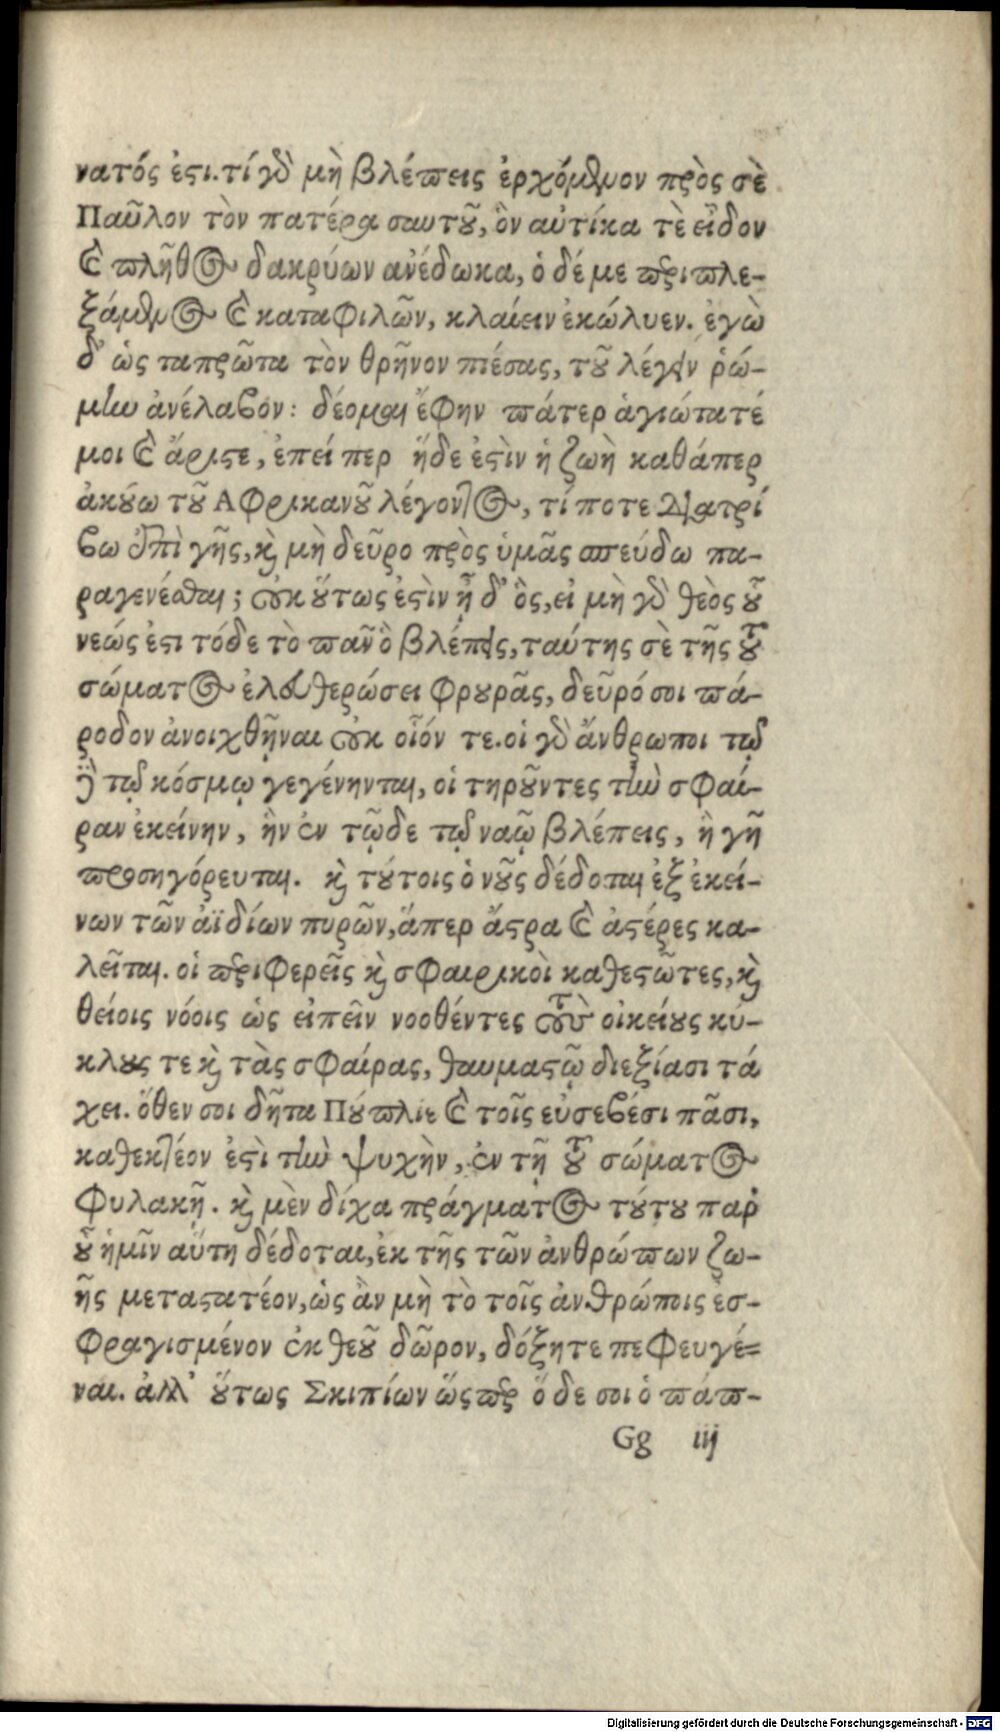 νατός ἐστι. τί γὰρ μὴ βλέπεις ἐρχόμενον πρὸς σὲ
Παῦλον τὸν πατέρα σαυτοῦ, ὃν αὐτίκα τὲ εἶδον
καὶ πλῆθος δακρύων ἀνέδωκα, ὁ δέ με περιπλε-
ξάμενος καὶ καταφιλῶν, κλαίειν ἐκώλυεν. ἐγὼ
δ' ὡς ταπρῶτα τὸν θρῆνον πιέσας, τοῦ λέγειν ῥώ-
μην ἀνέλαβον: δέομαι ἔφην πάτερ ἁγιώτατέ
μοι καὶ ἄριστε, ἐπεί περ ἥδε ἐστὶν ἡ ζωὴ καθάπερ
ἀκούω τοῦ Αφρικανοῦ λέγοντος, τί ποτε διατρί
βω ἐπὶ γῆς, καὶ μὴ δεῦρο πρὸς ὑμᾶς σπεύδω πα-
ραγενέσθαι; οὐκ οὕτως ἐστὶν ἦ δ' ὃς, εἰ μὴ γὰρ θεὸς οὗ
νεώς ἐστι τόδε τὸ πᾶν ὃ βλέπεις, ταύτης σὲ τῆς τοῦ
σώματος ἐλευθερώσει φρουρᾶς, δεῦρό σοι πά-
ροδον ἀνοιχθῆναι οὐκ οἷόν τε. οἱ γὰρ ἄνθρωποι τῷ
ἐν τῷ κόσμῳ γεγένηνται, οἱ τηροῦντες τὴν σφαί-
ραν ἐκείνην, ἣν ἐν τῷδε τῷ ναῷ βλέπεις, ἣ γῆ
προσηγόρευται. καὶ τούτοις ὁ νοῦς δέδοται ἐξ ἐκεί-
νων τῶν ἀϊδίων πυρῶν, ἅπερ ἄστρα καὶ ἀστέρες κα-
λεῖται. οἱ περιφερεῖς καὶ σφαιρικοὶ καθεστῶτες, καὶ
θείοις νόοις ὡς εἰπεῖν νοοθέντες τοὺς οἰκείους κύ-
κλους τε καὶ τὰς σφαίρας, θαυμαστῷ διεξίασι τά
χει. ὅθεν σοι δῆτα Πούπλιε καὶ τοῖς εὐσεβέσι πᾶσι,
καθεκτέον ἐστὶ τὴν ψυχὴν, ἐν τῇ τοῦ σώματος
φυλακῇ. καὶ μὲν δίχα πράγματος τούτου παρ'
οὗ ἡμῖν αὕτη δέδοται, ἐκ τῆς τῶν ἀνθρώπων ζω-
ῆς μεταστατέον, ὡς ἂν μὴ τὸ τοῖς ἀνθρώποις ἐσ-
φραγισμένον ἐκ θεοῦ δῶρον, δόξητε πεφευγέ-
ναι. ἀλλ' οὕτως Σκιπίων ὥςπερ ὅ δε σοι ὁ πάπ-
Gg iij
Digitalisierung gefördert durch die Deutsche Forschungsgemeinschaft - DFG